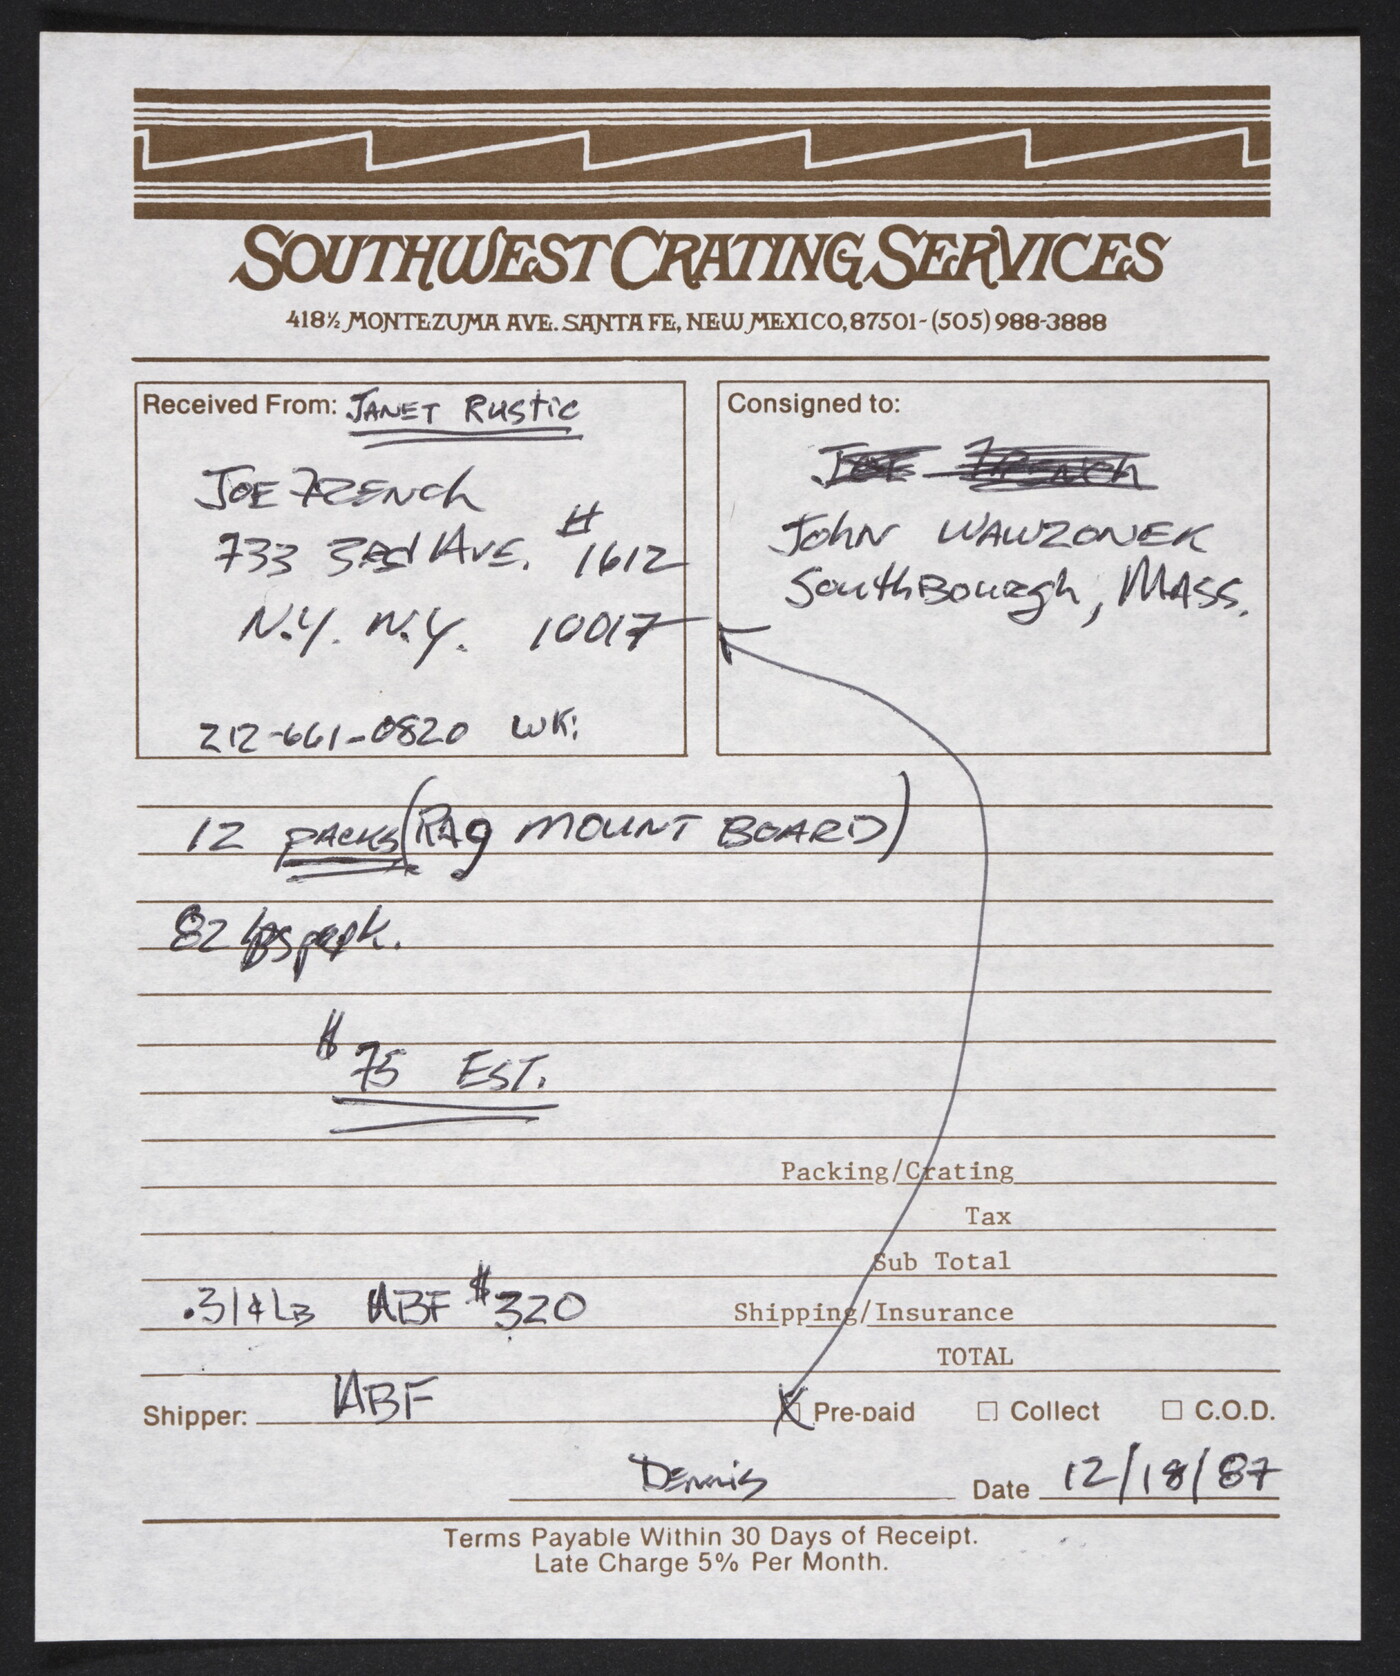 SOUTHWEST CRATING SERVICES
418½ MONTEZUMA AVE. SANTA FE, NEW MEXICO, 87501 - (505) 988-3888
Received From: JANET RUStic
JOE FRENCh
733 3rd AVE. # 1612
N.Y. N.Y. 10017
212-661-0820 WK:
Consigned to:
JOE FRENCh
John WAWZONEK
SouthBourgh, MASS.
12 PACKS (RAg MOUNT BOARD)
82 lbs
$75 EST.
Packing/Crating
Tax
Sub Total
.31¢ LB ABF $320 Shipping/Insurance
TOTAL
Shipper: ABF X Pre-paid ☐ Collect ☐ C.O.D.
Dennis Date 12/18/87
Terms Payable Within 30 Days of Receipt.
Late Charge 5% Per Month.